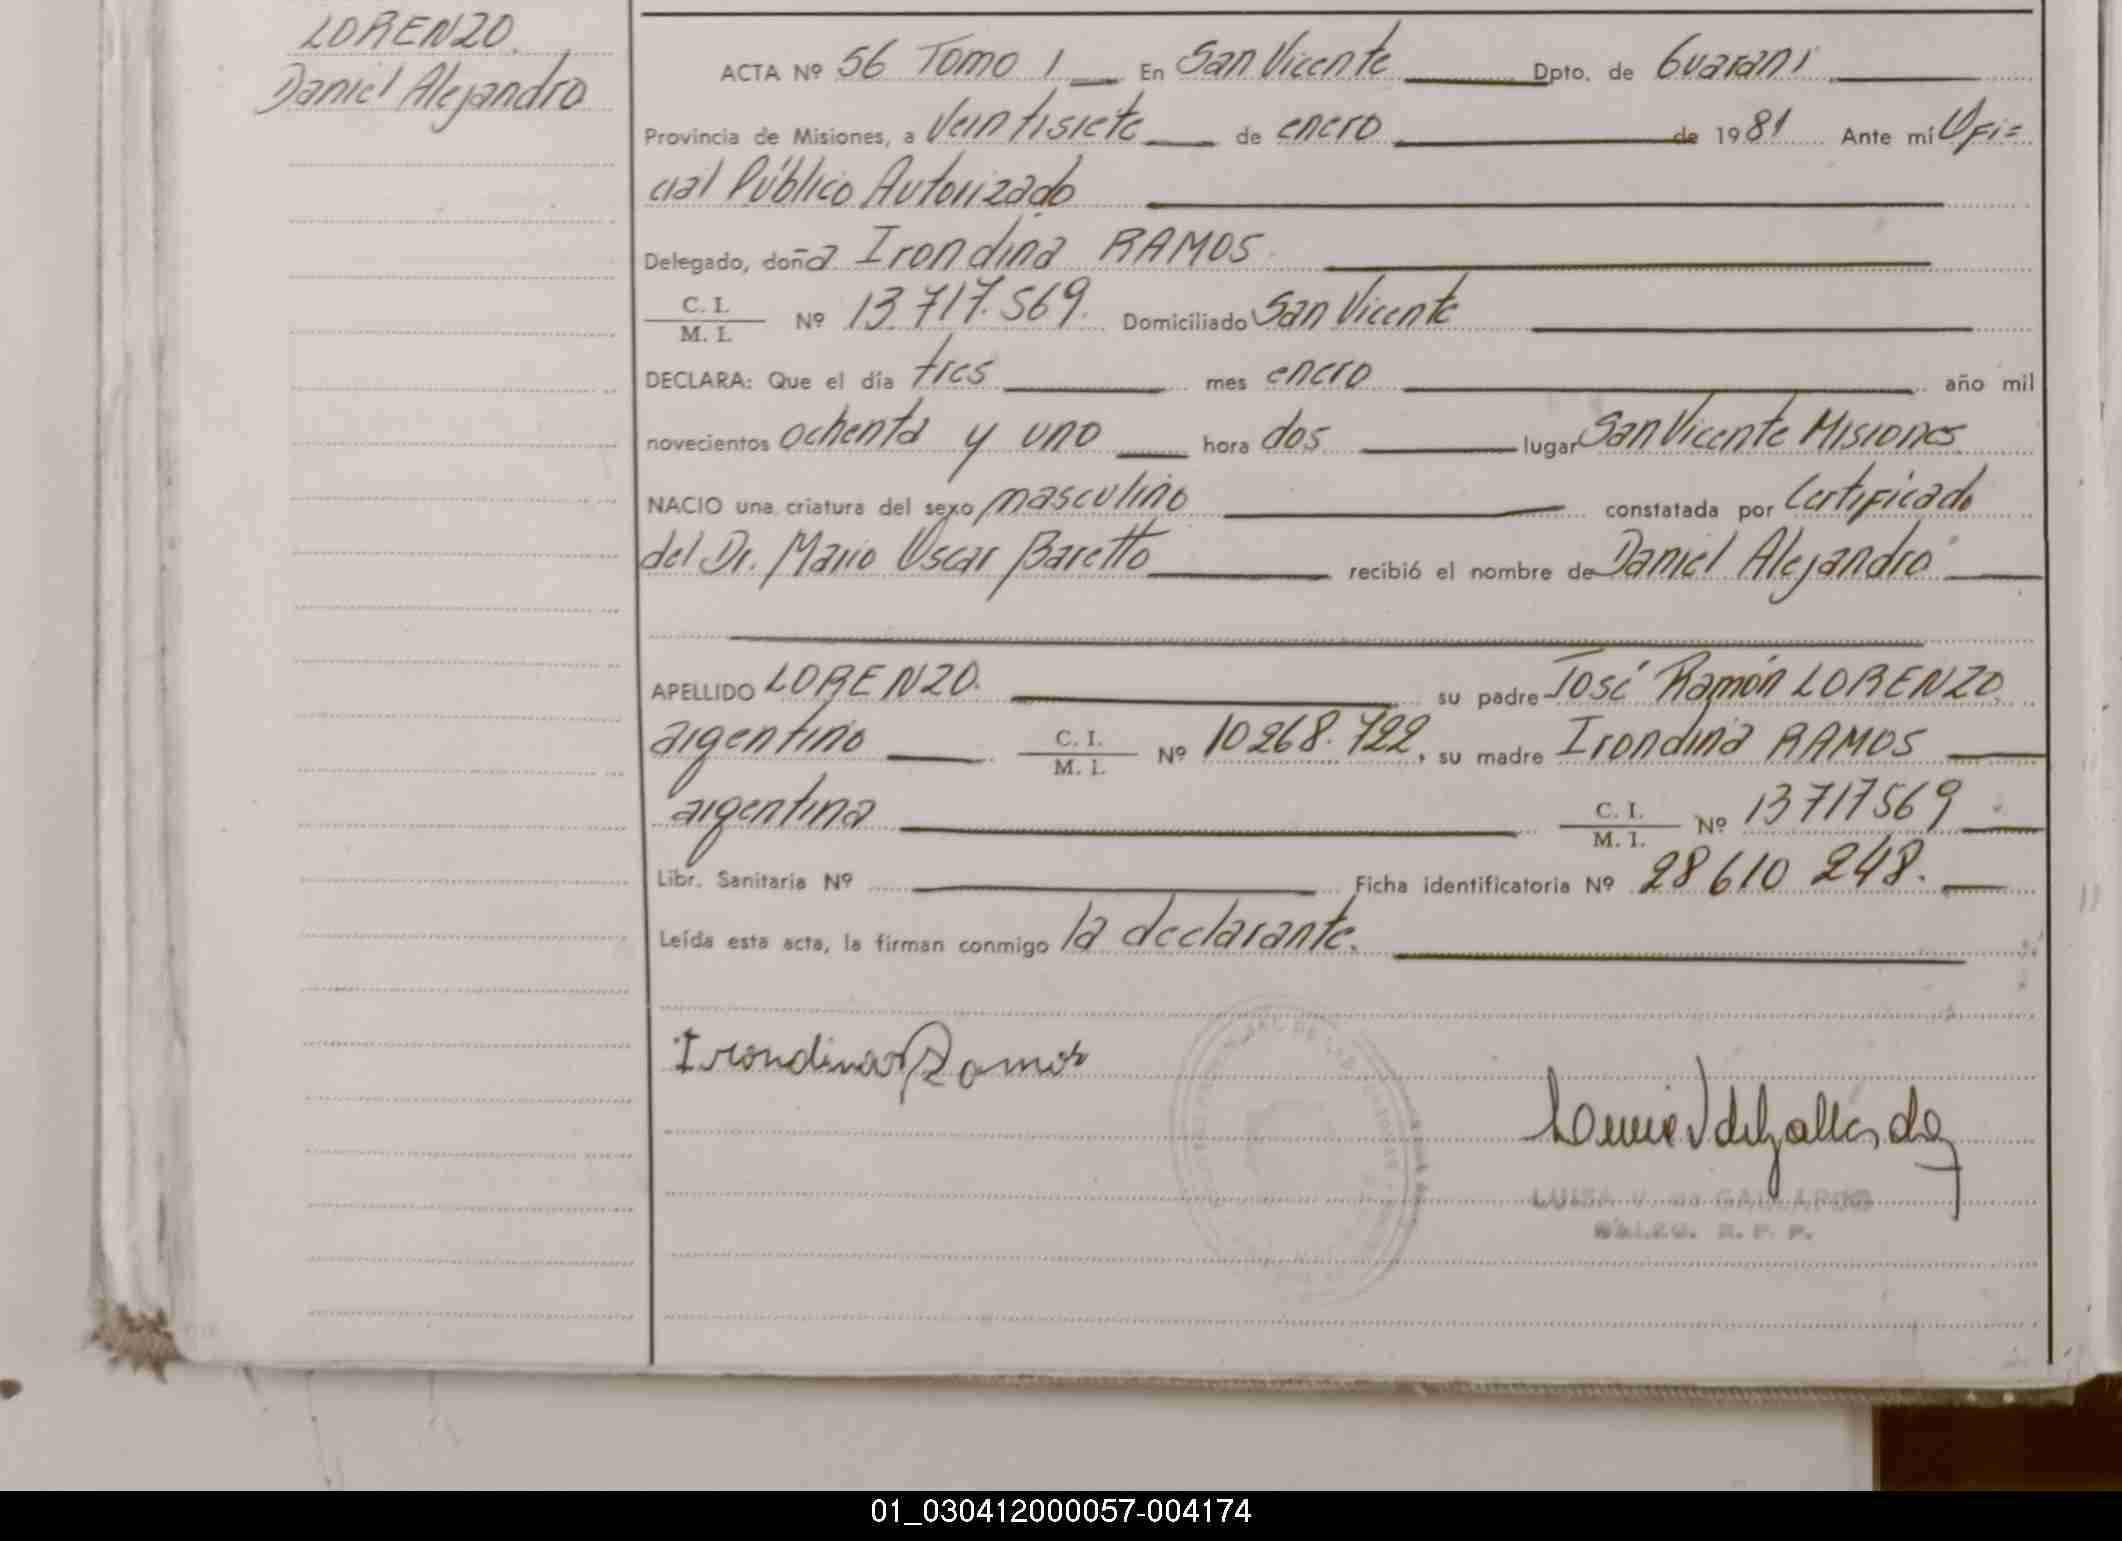 LORENZO.
Daniel Alejandro
ACTA Nº 56 Tomo 1 En San Vicente Dpto. de Guaraní
Provincia de Misiones, a veintisiete de enero de 1981 Ante mí Ofi=
cial Público Autorizado
Delegado, doña Irondina RAMOS.
C. I.
M. I. Nº 13.717.569. Domiciliado San Vicente
DECLARA: Que el día tres mes enero año mil
novecientos ochenta y uno hora dos lugar San Vicente Misiones
NACIO una criatura del sexo masculino constatada por Certificado
del Dr. Mario Oscar Baretto recibió el nombre de Daniel Alejandro
APELLIDO LORENZO. su padre José Ramón LORENZO.
argentino C. I. M. I. Nº 10268.722, su madre Irondina RAMOS
argentina C. I. M. I. Nº 13717569
Libr. Sanitaria Nº Ficha identificatoria Nº 28610 248.
Leída esta acta, la firman conmigo la declarante.
Irondina Ramos
LUISA V. de GALLARDO
01_030412000057-004174